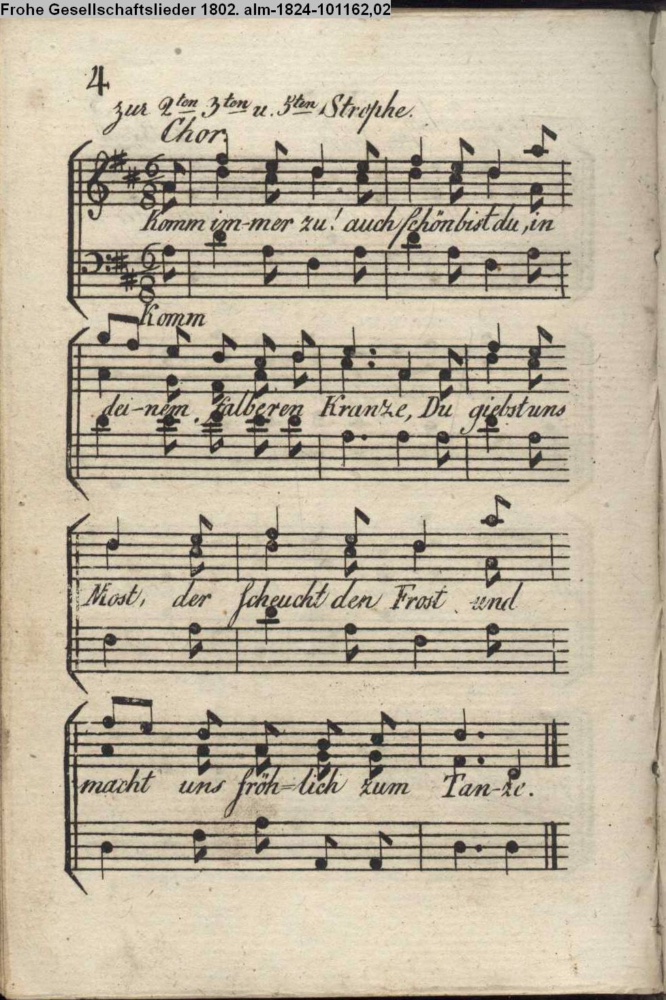 Frohe Gesellschaftslieder 1802. alm-1824-101162,02
4
zur 2ten 3ten u. 5ten Strophe.
Chor
Komm im-mer zu! auch schön bist du, in
Komm
dei-nem falberen Kranze, Du giebst uns
Most, der scheucht den Frost und
macht uns fröh=lich zum Tan-ze.